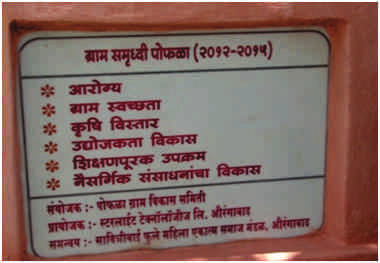 ग्राम समृध्दी पोफळा (२०१२-२०१५)
* आरोग्य
* ग्राम स्वच्छता
* कृषि विस्तार
* उद्योजकता विकास
* शिक्षणपूरक उपक्रम
* नैसर्गिक संसाधनांचा विकास
संयोजक :- पोफळा ग्राम विकास समिती
प्रायोजक :- स्टरलाईट टेक्नॉलॉजीज लि. औरंगाबाद
समन्वय :- सावित्रीबाई फुले महिला एकात्म समाज मंडळ, औरंगाबाद